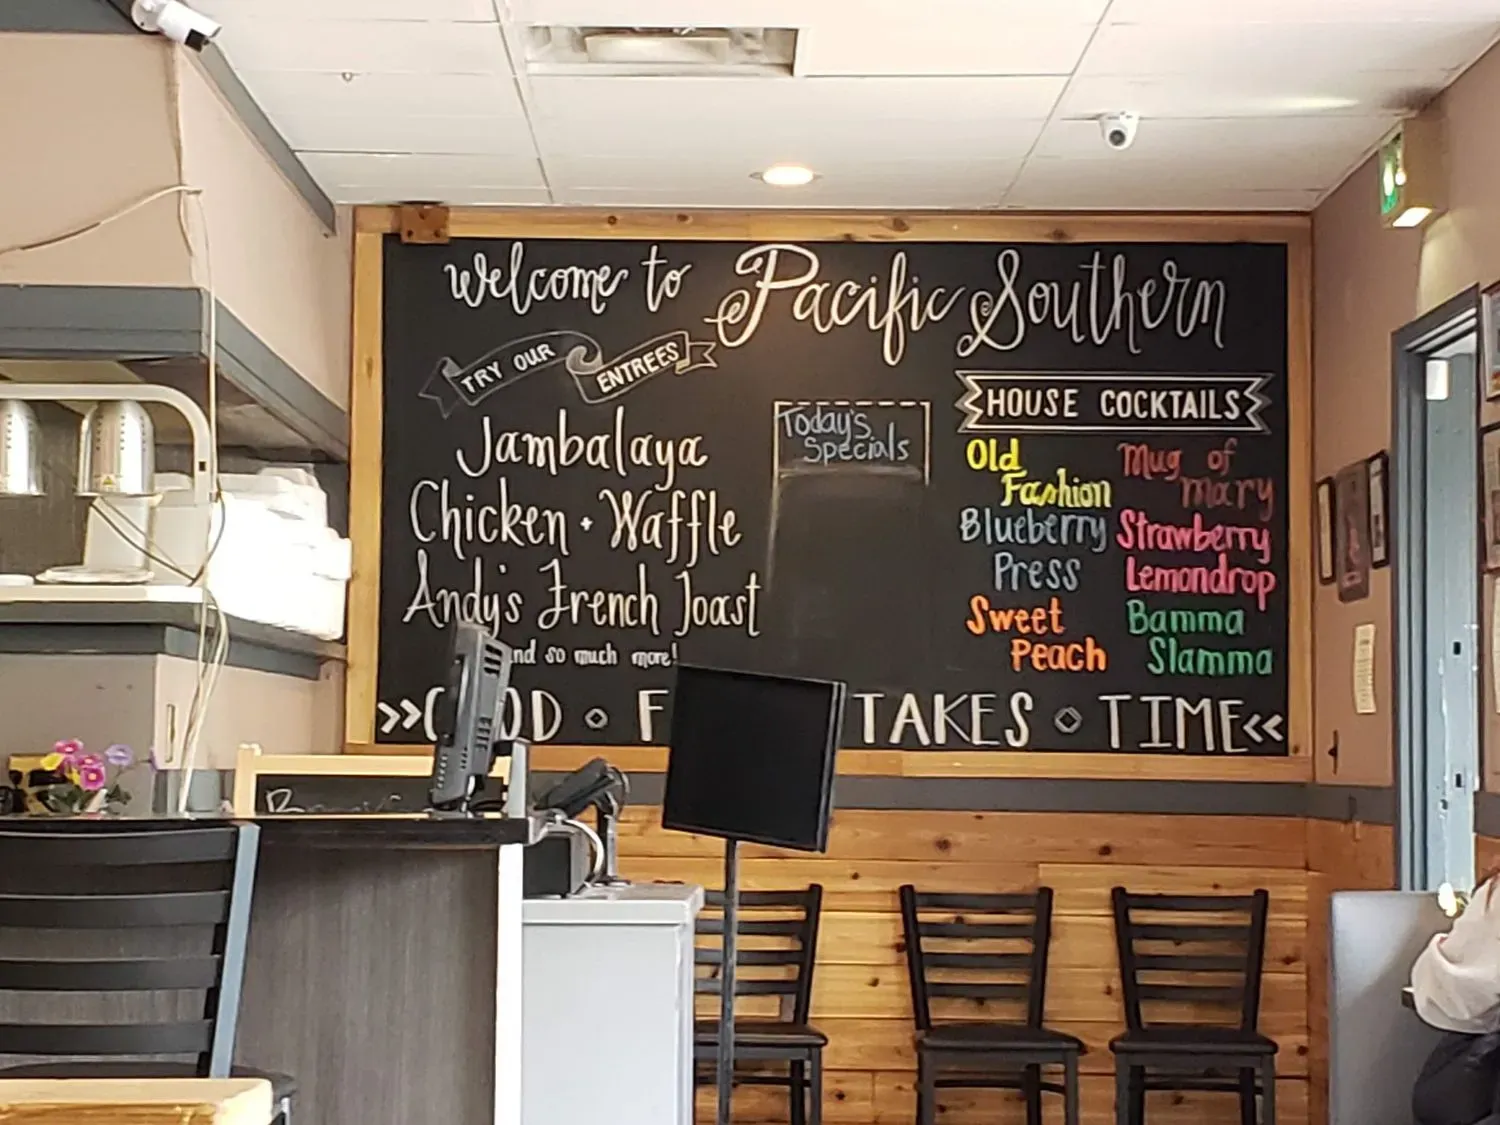 Welcome to Pacific Southern
TRY OUR ENTREES
Jambalaya
Chicken + Waffle
Andy's French Toast
nd so much more!
Today's
Specials
HOUSE COCKTAILS
Old
Fashion
Blueberry
Press
Sweet
Peach
Mug of
mary
Strawberry
Lemondrop
Bamma
Slamma
>> OD ◇ F TAKES ◇ TIME <<